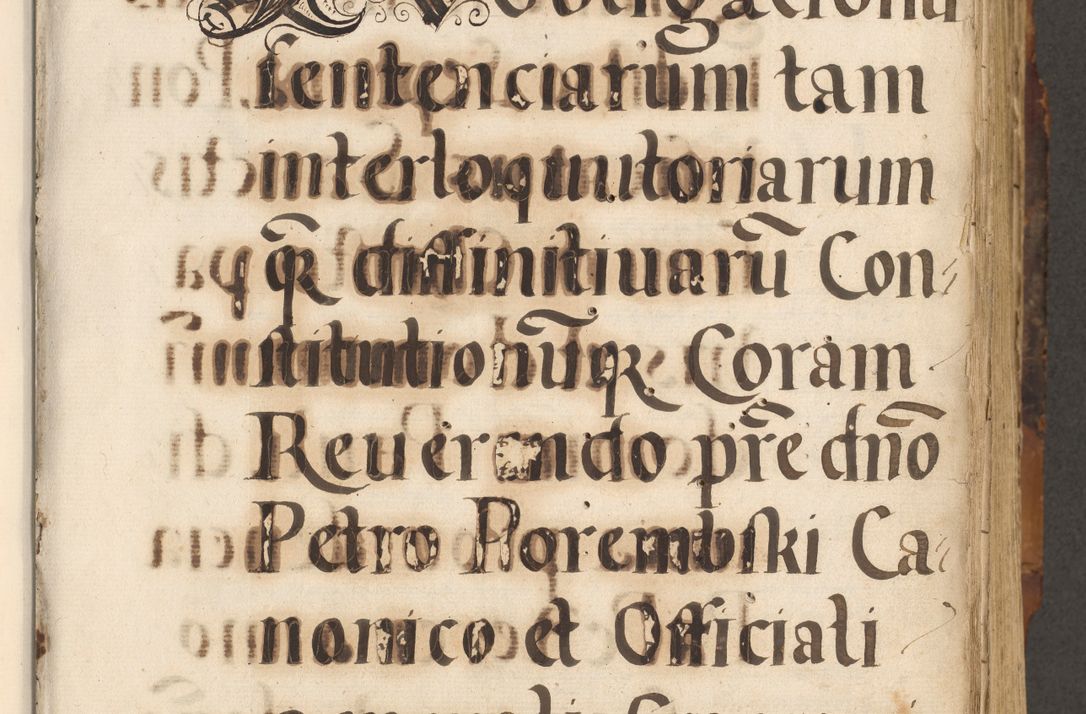 Obligacionu
sentenciarum tam
interloquutoriarum
qR diffinitiuarũ Con
stitutionũqR Coram
Reuerendo pr̃e dnõ
Petro Porembski Ca
nonico et Officiali